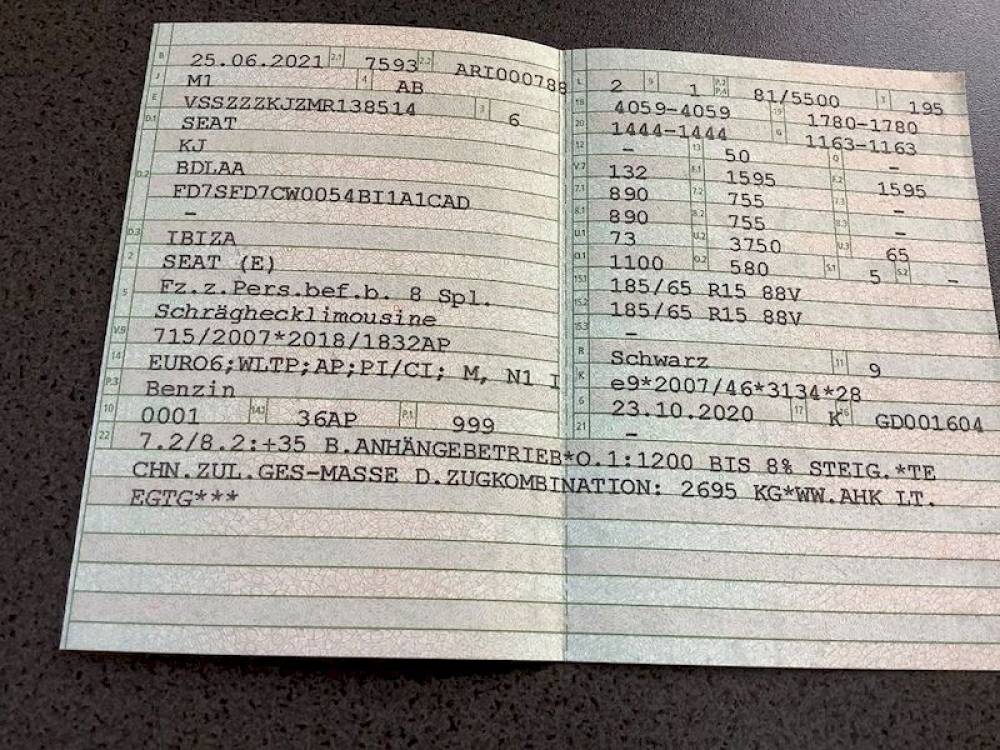 B 25.06.2021 2.1 7593 2.2 ARI000788
J M1 4 AB
E VSSZZZKJZMR138514 3 6
D.1 SEAT
KJ
D.2 BDLAA
FD7SFD7CW0054BI1A1CAD
–
D.3 IBIZA
2 SEAT (E)
5 Fz.z.Pers.bef.b. 8 Spl.
Schräghecklimousine
V.9 715/2007*2018/1832AP
14 EURO6;WLTP;AP;PI/CI; M, N1 I
P.3 Benzin
10 0001 14.1 36AP P.1 999
L 2 9 1 P.2 P.4 81/5500 T 195
18 4059-4059 19 1780-1780
20 1444-1444 G 1163-1163
12 – 13 50 Q –
V.7 132 F.1 1595 F.2 1595
7.1 890 7.2 755 7.3 –
8.1 890 8.2 755 8.3 –
U.1 73 U.2 3750 U.3 65
O.1 1100 O.2 580 S.1 5 S.2 –
15.1 185/65 R15 88V
15.2 185/65 R15 88V
15.3 –
R Schwarz 11 9
K e9*2007/46*3134*28
6 23.10.2020 17 K 16 GD001604
21 –
22 7.2/8.2:+35 B.ANHÄNGEBETRIEB*O.1:1200 BIS 8% STEIG.*TE
CHN.ZUL.GES-MASSE D.ZUGKOMBINATION: 2695 KG*WW.AHK LT.
EGTG***